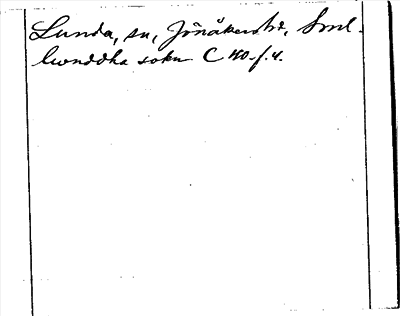 Lunda, sn, Jönåkers hd, Sml.
lwnddha sokn C 40 f. 4.